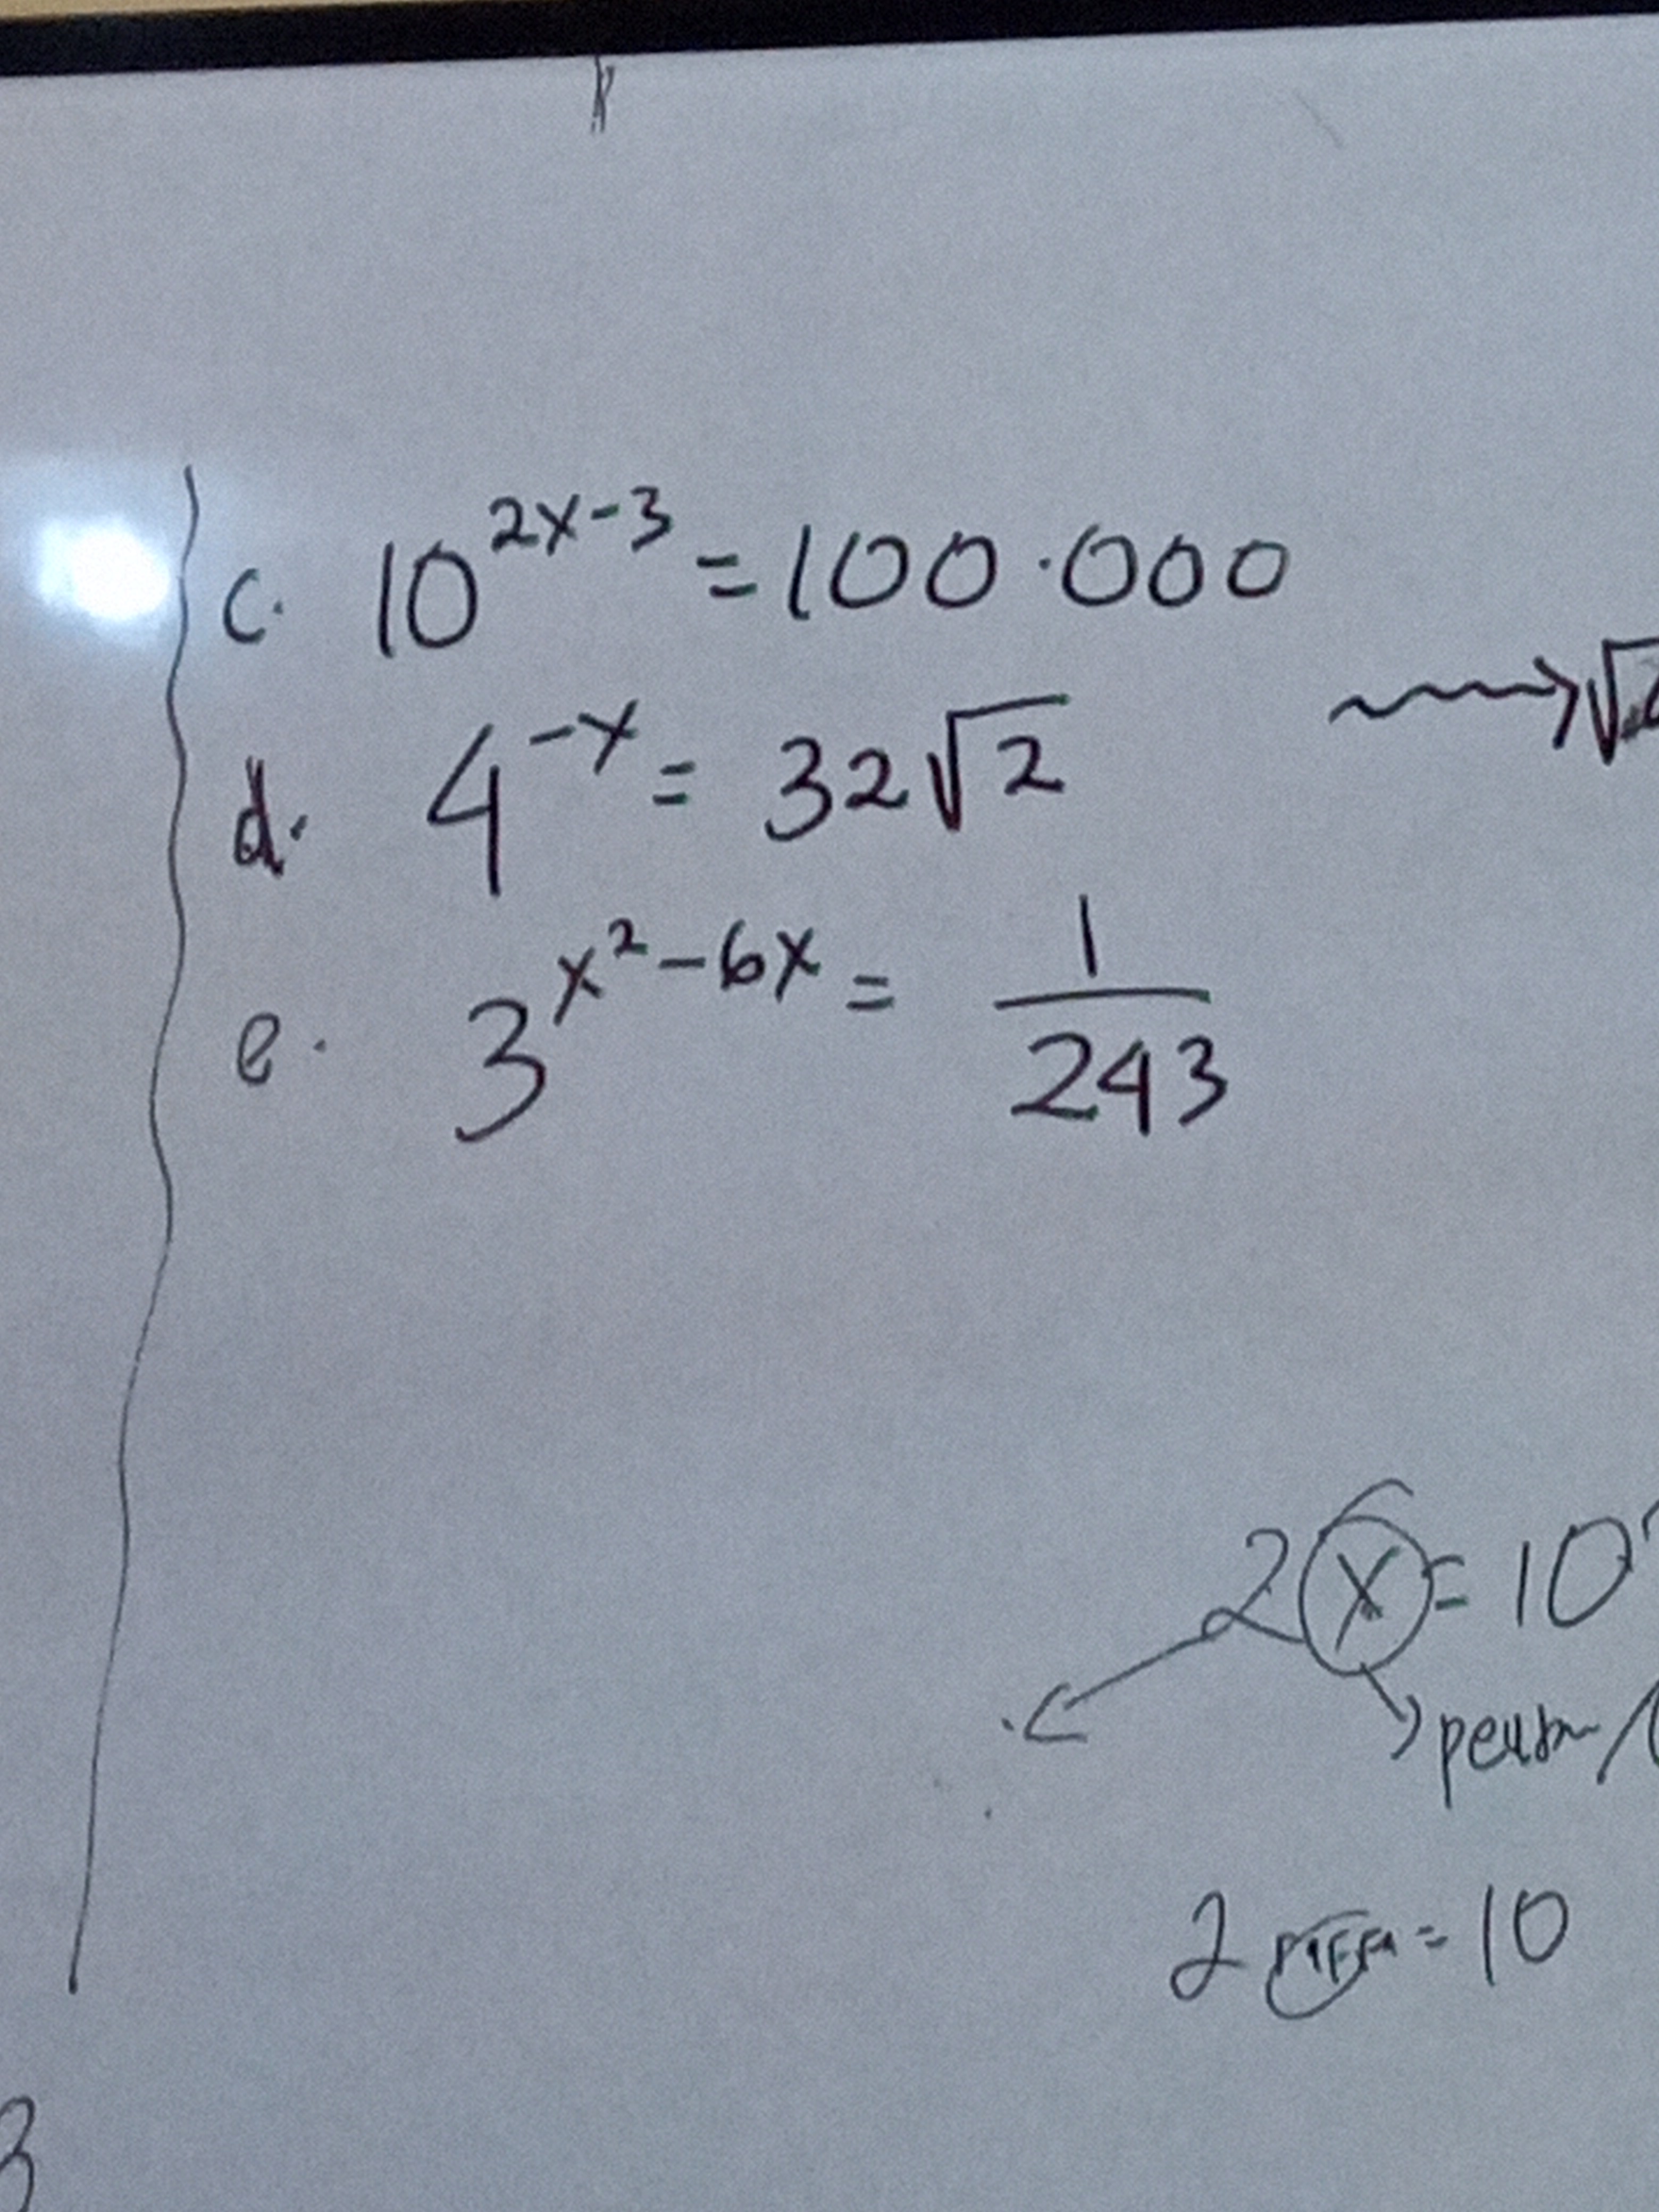 c. 10^{2x-3} = 100.000
d. 4^{-x} = 32√2
e. 3^{x²-6x} = 1/243
2x = 10
2 = 10
3